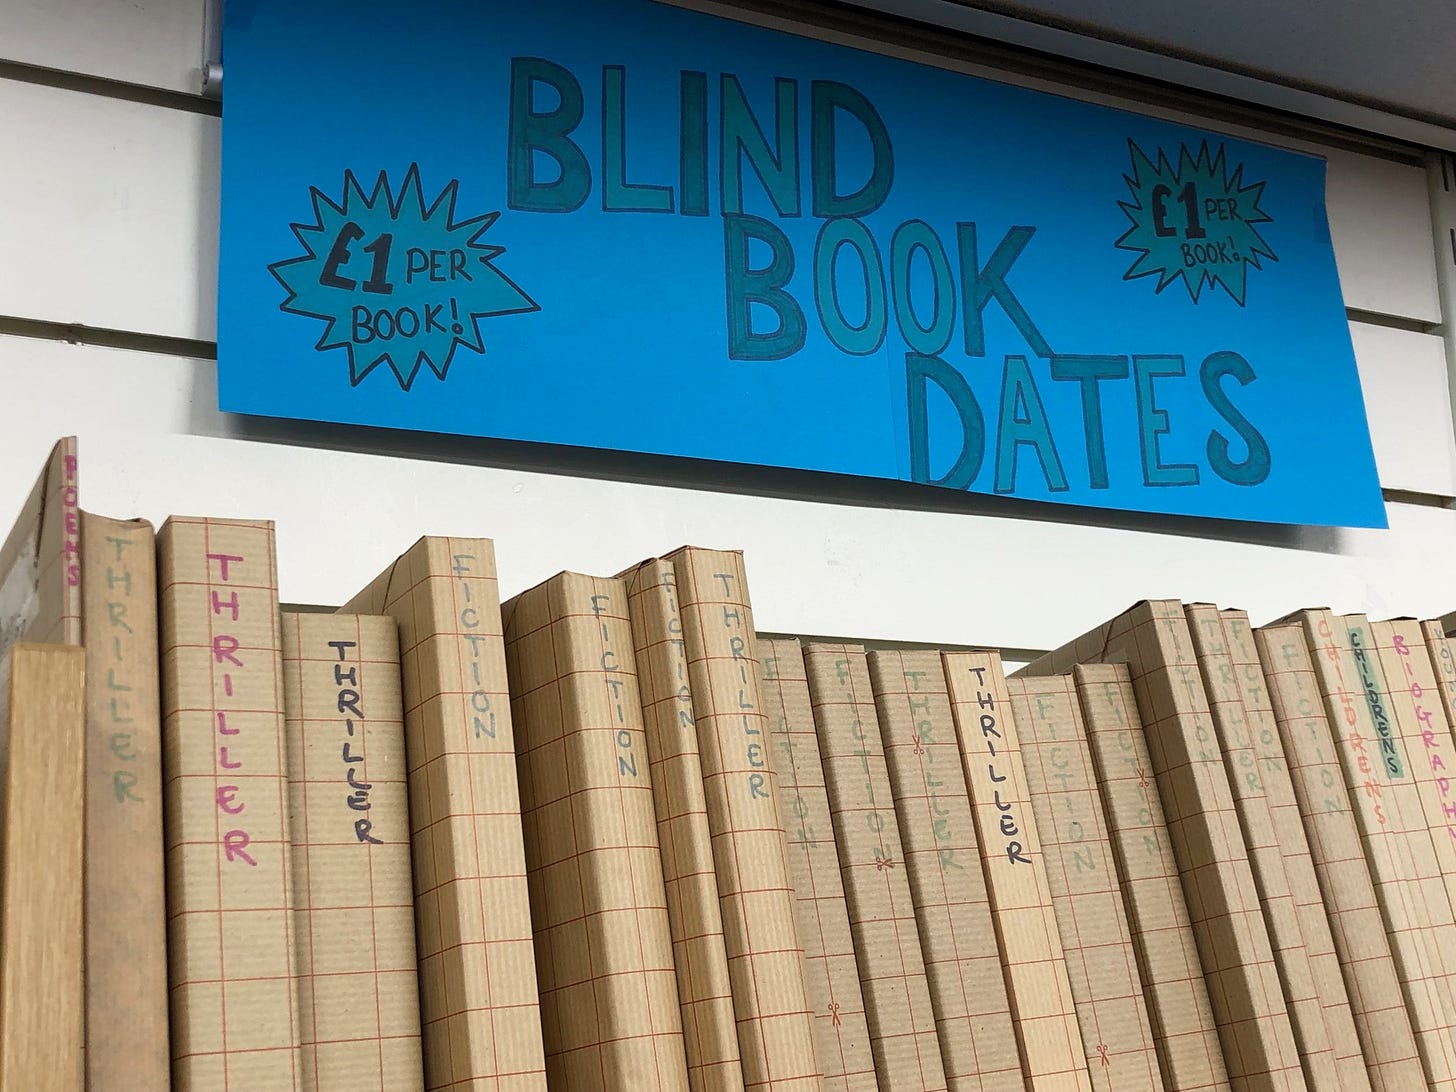 BLIND
BOOK
DATES
£1 PER
BOOK!
£1 PER
BOOK!
POEMS
THRILLER
THRILLER
THRILLER
FICTION
FICTION
FICTION
THRILLER
FICTION
FICTION
THRILLER
THRILLER
FICTION
FICTION
FICTION
THRILLER
FICTION
FICTION
CHILDRENS
CHILDRENS
BIOGRAPH